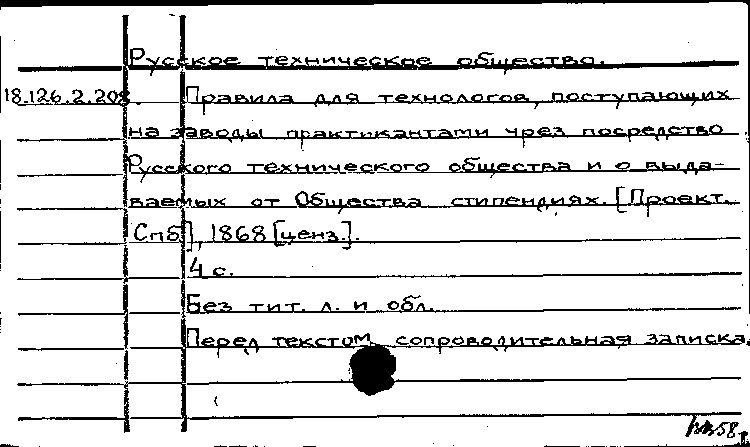 Русское техническое общество.
18.126.2.208. Правила для технологов, поступающих
на заводы практикантами чрез посредство
Русского технического общества и о выда-
ваемых от Общества стипендиях. [Проект.
Спб], 1868 [ценз.].
4 с.
Без тит. л. и обл.
Перед текстом сопроводительная записка.
58